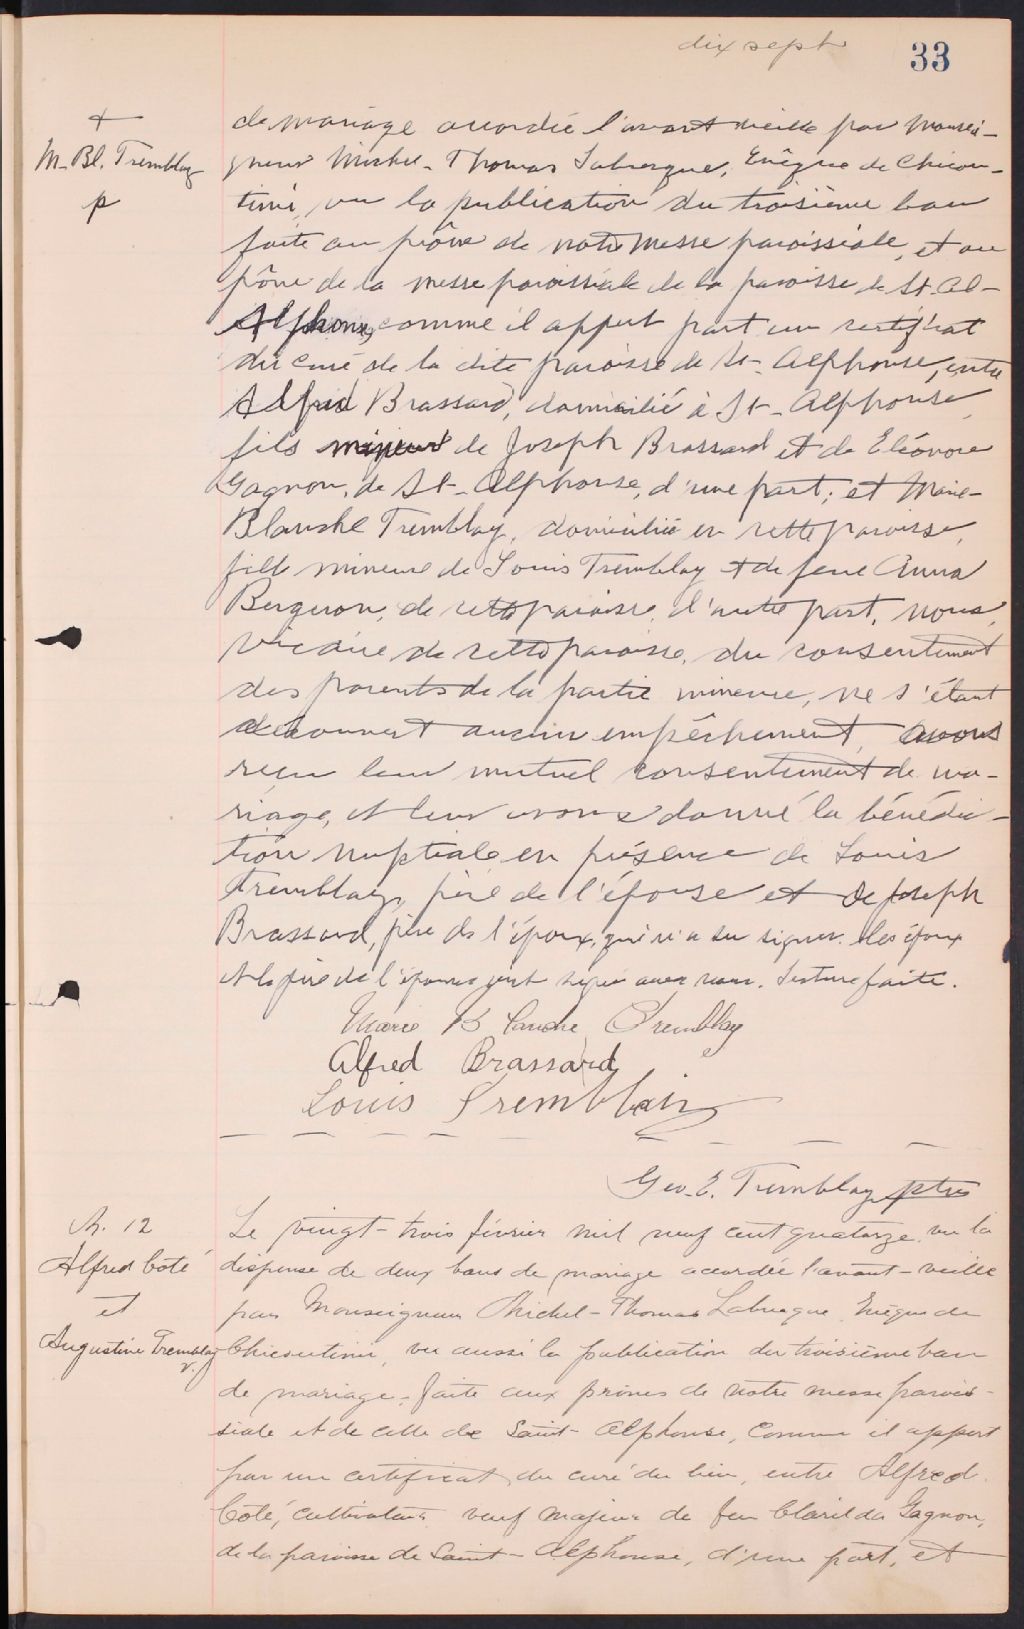 dix sept
33
+
M-Bl. Tremblay
p
de mariage accordée l'avant veille par Monsei-
gneur Michel-Thomas Labrecque, Evêque de Chicou-
timi, vu la publication du troisième ban
faite au prône de notre messe paroissiale, et au
pône de la messe paroissiale de la paroisse de St. Al-
Alphonse, comme il appert part un certificat
du curé de la dite paroisse de St-Alphonse, entre
Alfred Brassard, domicilié à St-Alphonse,
fils majeur de Joseph Brassard et de Eléonore
Gagnon, de St-Alphonse, d'une part; et Marie-
Blanche Tremblay, domiciliée en cette paroisse,
fille mineure de Louis Tremblay et de feue Anna
Bergeron, de cette paroisse, d'autre part, nous,
vicaire de cette paroisse, du consentement
des parents de la partie mineure, ne s'étant
découvert aucun empêchement, avons
reçu leur mutuel consentement de ma-
riage, et leur avons donné la bénédic-
tion nuptiale en présence de Louis
Tremblay, père de l'épouse et de Joseph
Brassard, père de l'époux, qui n'a su signer. Les époux
et le père de l'épouse ont signé avec nous. Lecture faite.
Marie Blanche Tremblay
Alfred Brassard
Louis Tremblay
Geo. E. Tremblay ptre
M. 12
Alfred Coté
et
Augustine Tremblay
Le vingt-trois février mil neuf cent quatorze, vu la
dispense de deux bans de mariage accordée l'avant-veille
par Monseigneur Michel-Thomas Labrecque Evêque de
Chicoutimi, vu aussi la publication du troisième ban
de mariage, faite aux prônes de notre messe parois-
siale et de celle de Saint-Alphonse, comme il appert
par un certificat du curé du lieu, entre Alfred
Coté, cultivateur, veuf majeur de feu Clarilda Gagnon,
de la paroisse de Saint-Alphonse, d'une part, et